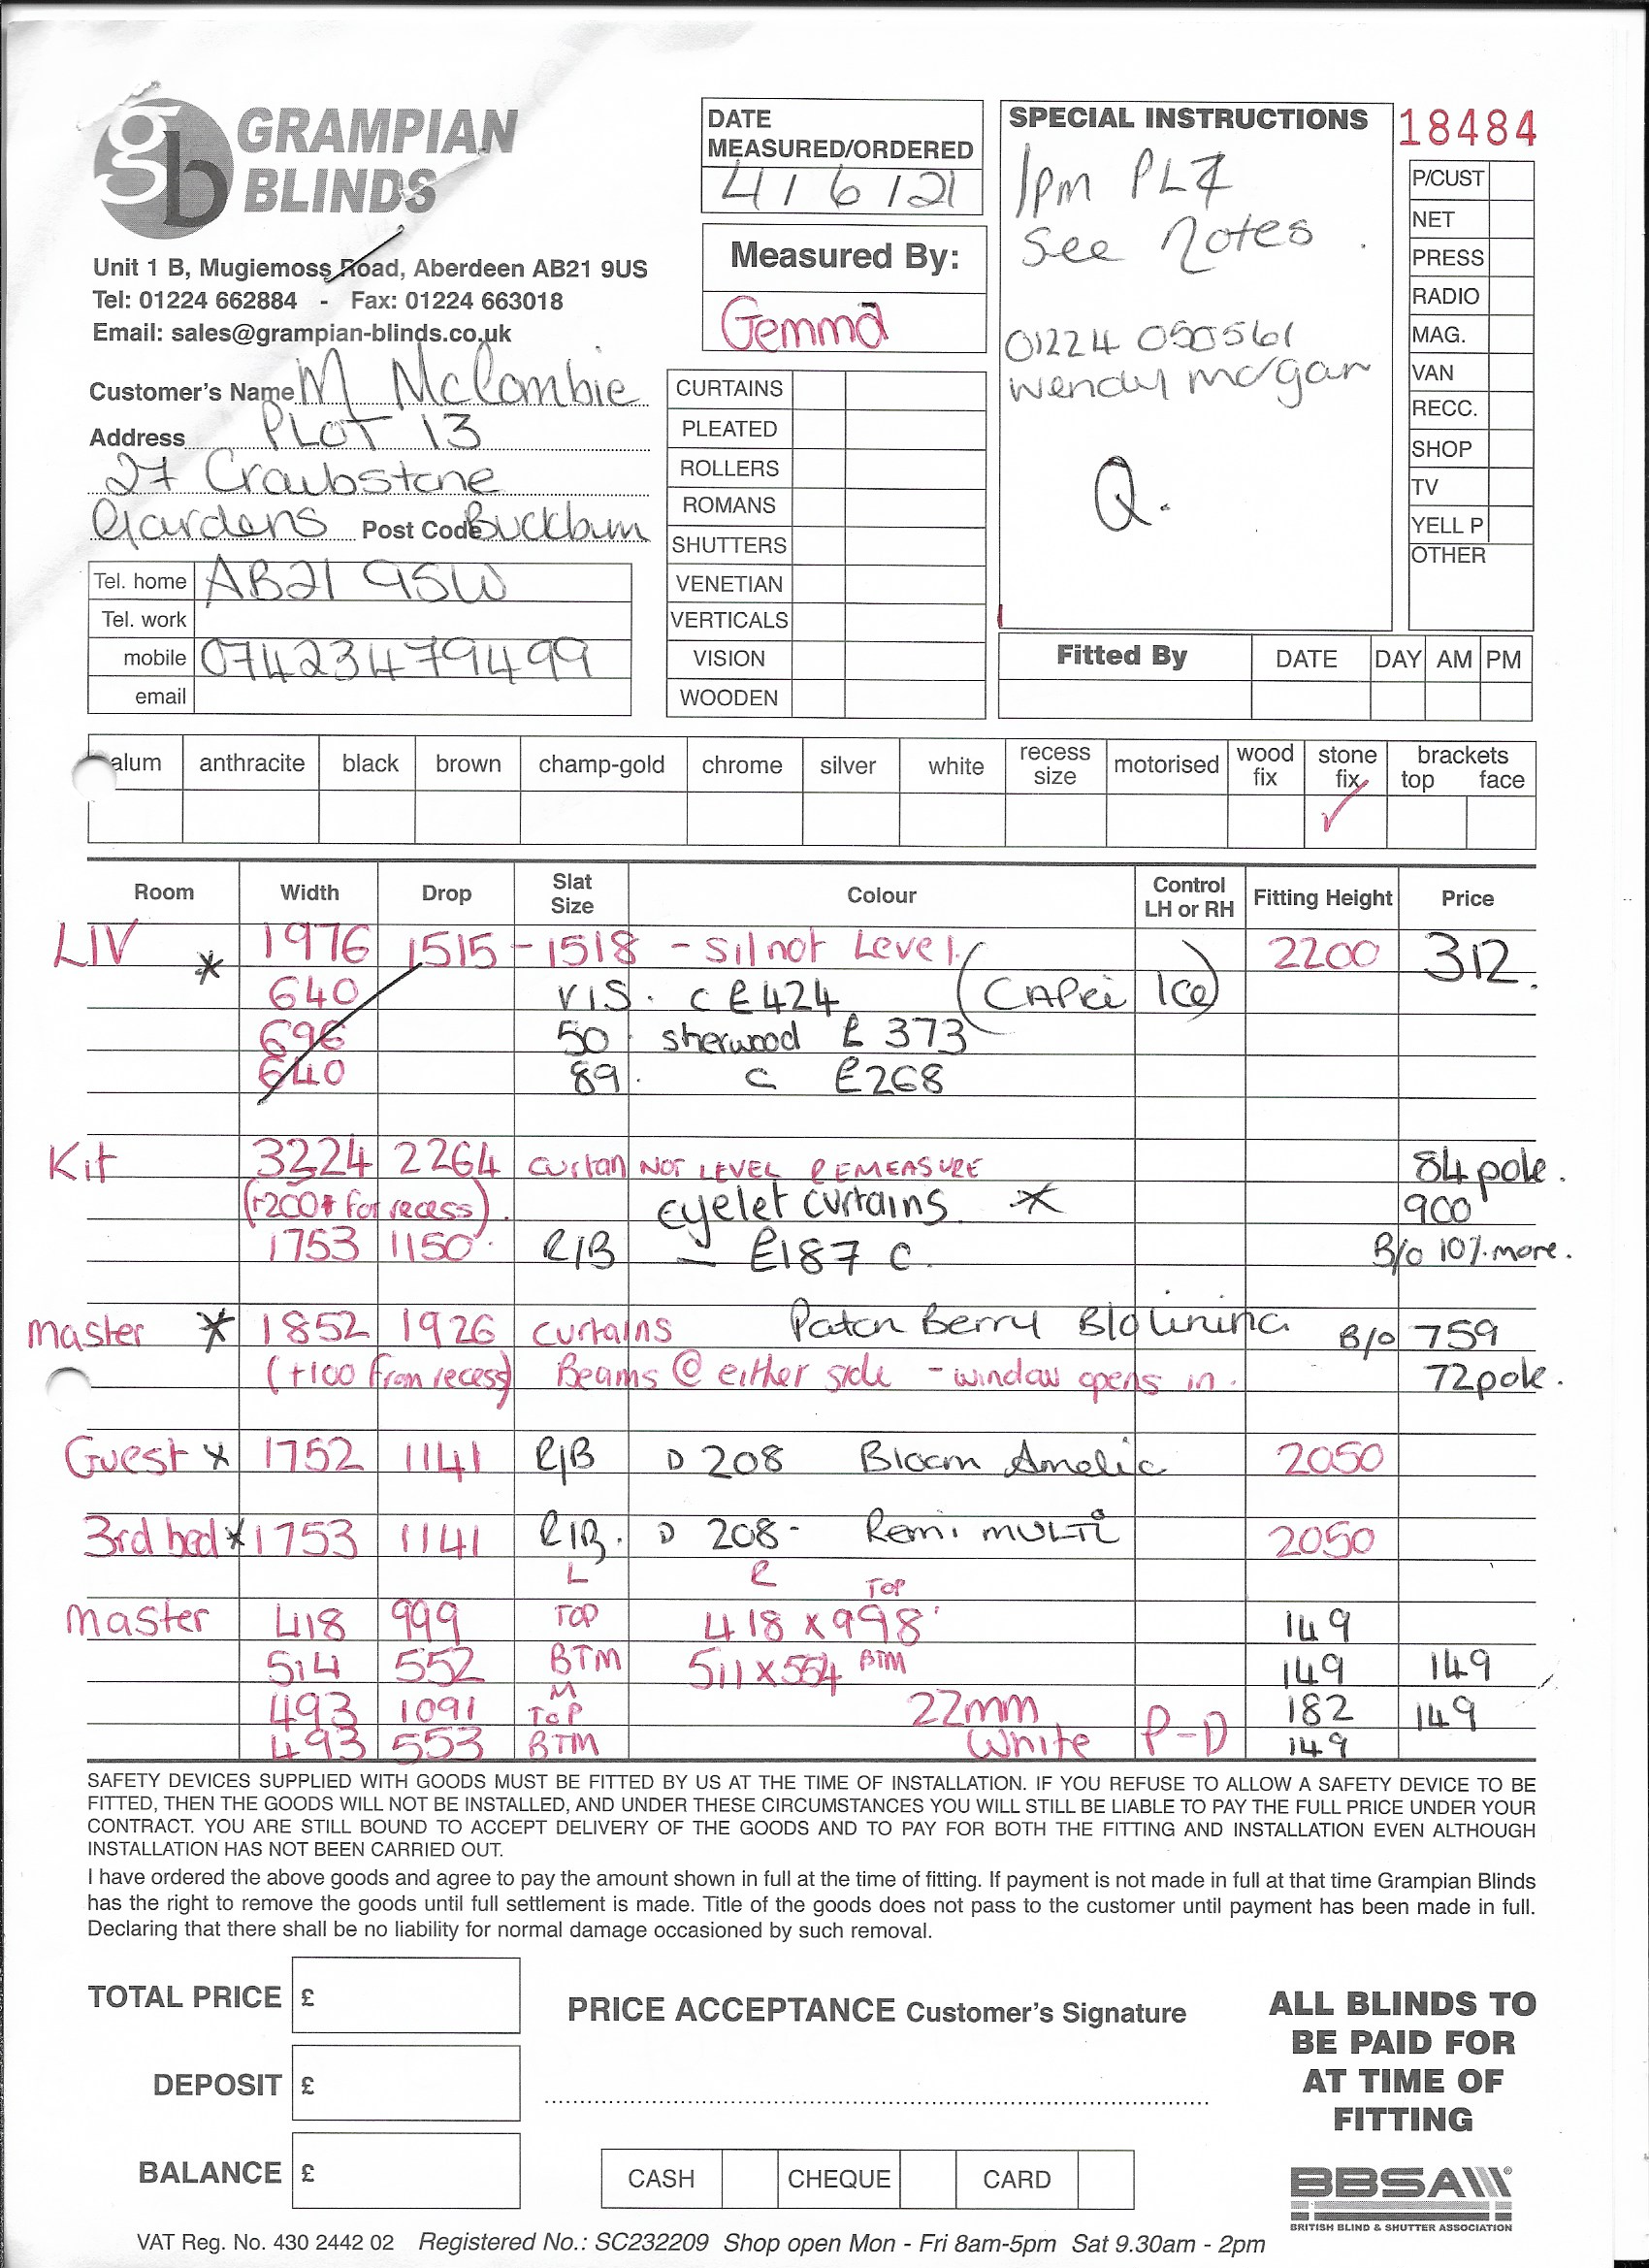 GRAMPIAN
BLINDS
Unit 1 B, Mugiemoss Road, Aberdeen AB21 9US
Tel: 01224 662884 - Fax: 01224 663018
Email: sales@grampian-blinds.co.uk
Customer's Name M McCombie
Address PLOT 13
27 Craibstone
Gardens Post Code Bucksburn
Tel. home AB21 9SW
Tel. work
mobile 07423479499
email
DATE
MEASURED/ORDERED
4/6/21
Measured By:
Gemma
CURTAINS
PLEATED
ROLLERS
ROMANS
SHUTTERS
VENETIAN
VERTICALS
VISION
WOODEN
SPECIAL INSTRUCTIONS
1pm PLZ
See Notes.
01224 050561
wendy morgan
Q.
18484
P/CUST
NET
PRESS
RADIO
MAG.
VAN
RECC.
SHOP
TV
YELL P
OTHER
Fitted By DATE DAY AM PM
alum anthracite black brown champ-gold chrome silver white recess size motorised wood fix stone fix brackets top face
✓
Room Width Drop Slat Size Colour Control LH or RH Fitting Height Price
LIV * 1976 1515 - 1518 - Sil not Level. 2200 312.
640 VIS. C £424 (CAPRi Ice)
696 50 sherwood £ 373
640 89. C £268
Kit 3224 2264 curtan NOT LEVEL REMEASURE 84 pole.
(+200+ For recess). eyelet curtains * 900
1753 1150 R/B — £187 C. B/o 10% more.
master * 1852 1926 curtains Patch Berry B/O Lining B/o 759
(+100 from recess) Beams @ either side - window opens in. 72 pole.
Guest x 1752 1141 R/B D 208 Bloom Amelie 2050
3rd bed * 1753 1141 R/B. D 208- Remi MULTi 2050
L R TOP
master 418 999 TOP 418 x 998 149
514 552 BTM 511 x 554 BTM 149 149
M
493 1091 TOP 22mm 182 149
493 553 BTM White P-D 149
SAFETY DEVICES SUPPLIED WITH GOODS MUST BE FITTED BY US AT THE TIME OF INSTALLATION. IF YOU REFUSE TO ALLOW A SAFETY DEVICE TO BE
FITTED, THEN THE GOODS WILL NOT BE INSTALLED, AND UNDER THESE CIRCUMSTANCES YOU WILL STILL BE LIABLE TO PAY THE FULL PRICE UNDER YOUR
CONTRACT. YOU ARE STILL BOUND TO ACCEPT DELIVERY OF THE GOODS AND TO PAY FOR BOTH THE FITTING AND INSTALLATION EVEN ALTHOUGH
INSTALLATION HAS NOT BEEN CARRIED OUT.
I have ordered the above goods and agree to pay the amount shown in full at the time of fitting. If payment is not made in full at that time Grampian Blinds
has the right to remove the goods until full settlement is made. Title of the goods does not pass to the customer until payment has been made in full.
Declaring that there shall be no liability for normal damage occasioned by such removal.
TOTAL PRICE £
DEPOSIT £
BALANCE £
PRICE ACCEPTANCE Customer's Signature
CASH CHEQUE CARD
ALL BLINDS TO
BE PAID FOR
AT TIME OF
FITTING
BBSA
BRITISH BLIND & SHUTTER ASSOCIATION
VAT Reg. No. 430 2442 02 Registered No.: SC232209 Shop open Mon - Fri 8am-5pm Sat 9.30am - 2pm